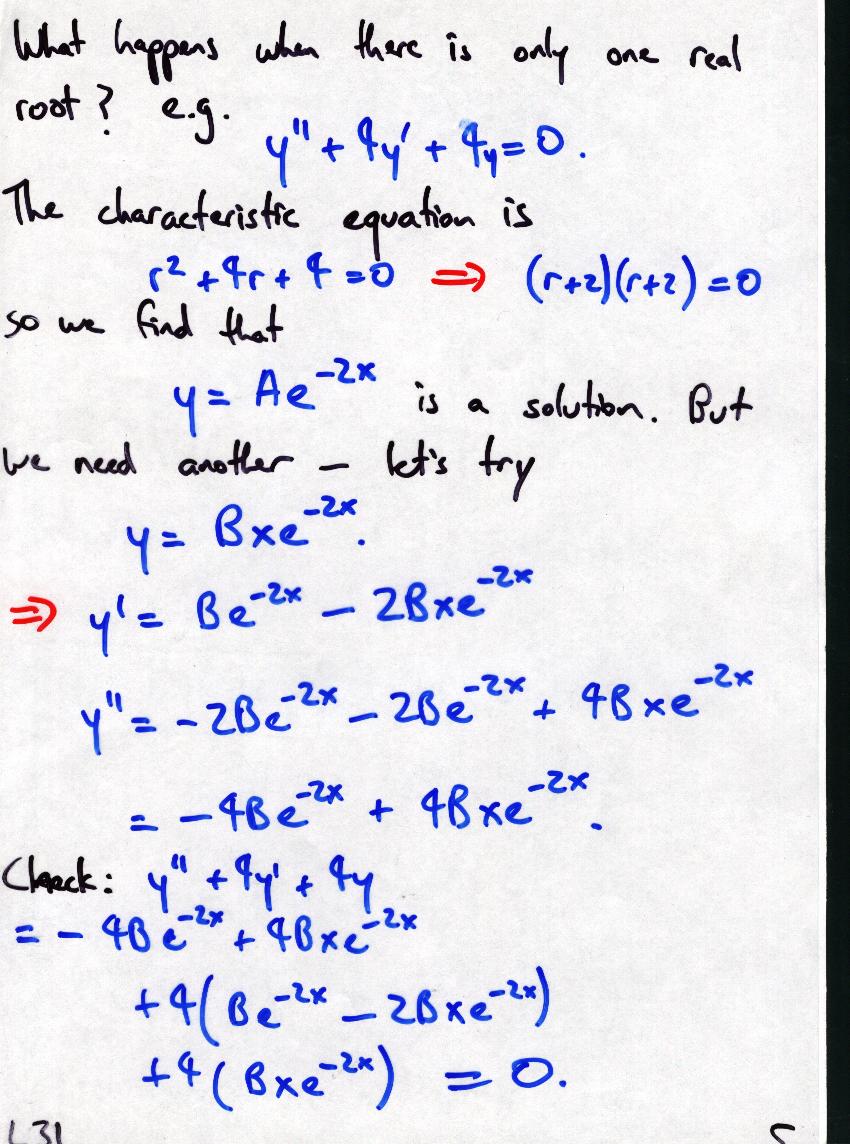 What happens when there is only one real
root? e.g.
y" + 4y' + 4y = 0.
The characteristic equation is
r² + 4r + 4 = 0 ⇒ (r+2)(r+2) = 0
so we find that
y = Ae^{-2x} is a solution. But
we need another – let's try
y = Bxe^{-2x}.
⇒ y' = Be^{-2x} – 2Bxe^{-2x}
y" = -2Be^{-2x} – 2Be^{-2x} + 4Bxe^{-2x}
= -4Be^{-2x} + 4Bxe^{-2x}.
Check: y" + 4y' + 4y
= -4Be^{-2x} + 4Bxe^{-2x}
+4(Be^{-2x} – 2Bxe^{-2x})
+4(Bxe^{-2x}) = 0.
L31